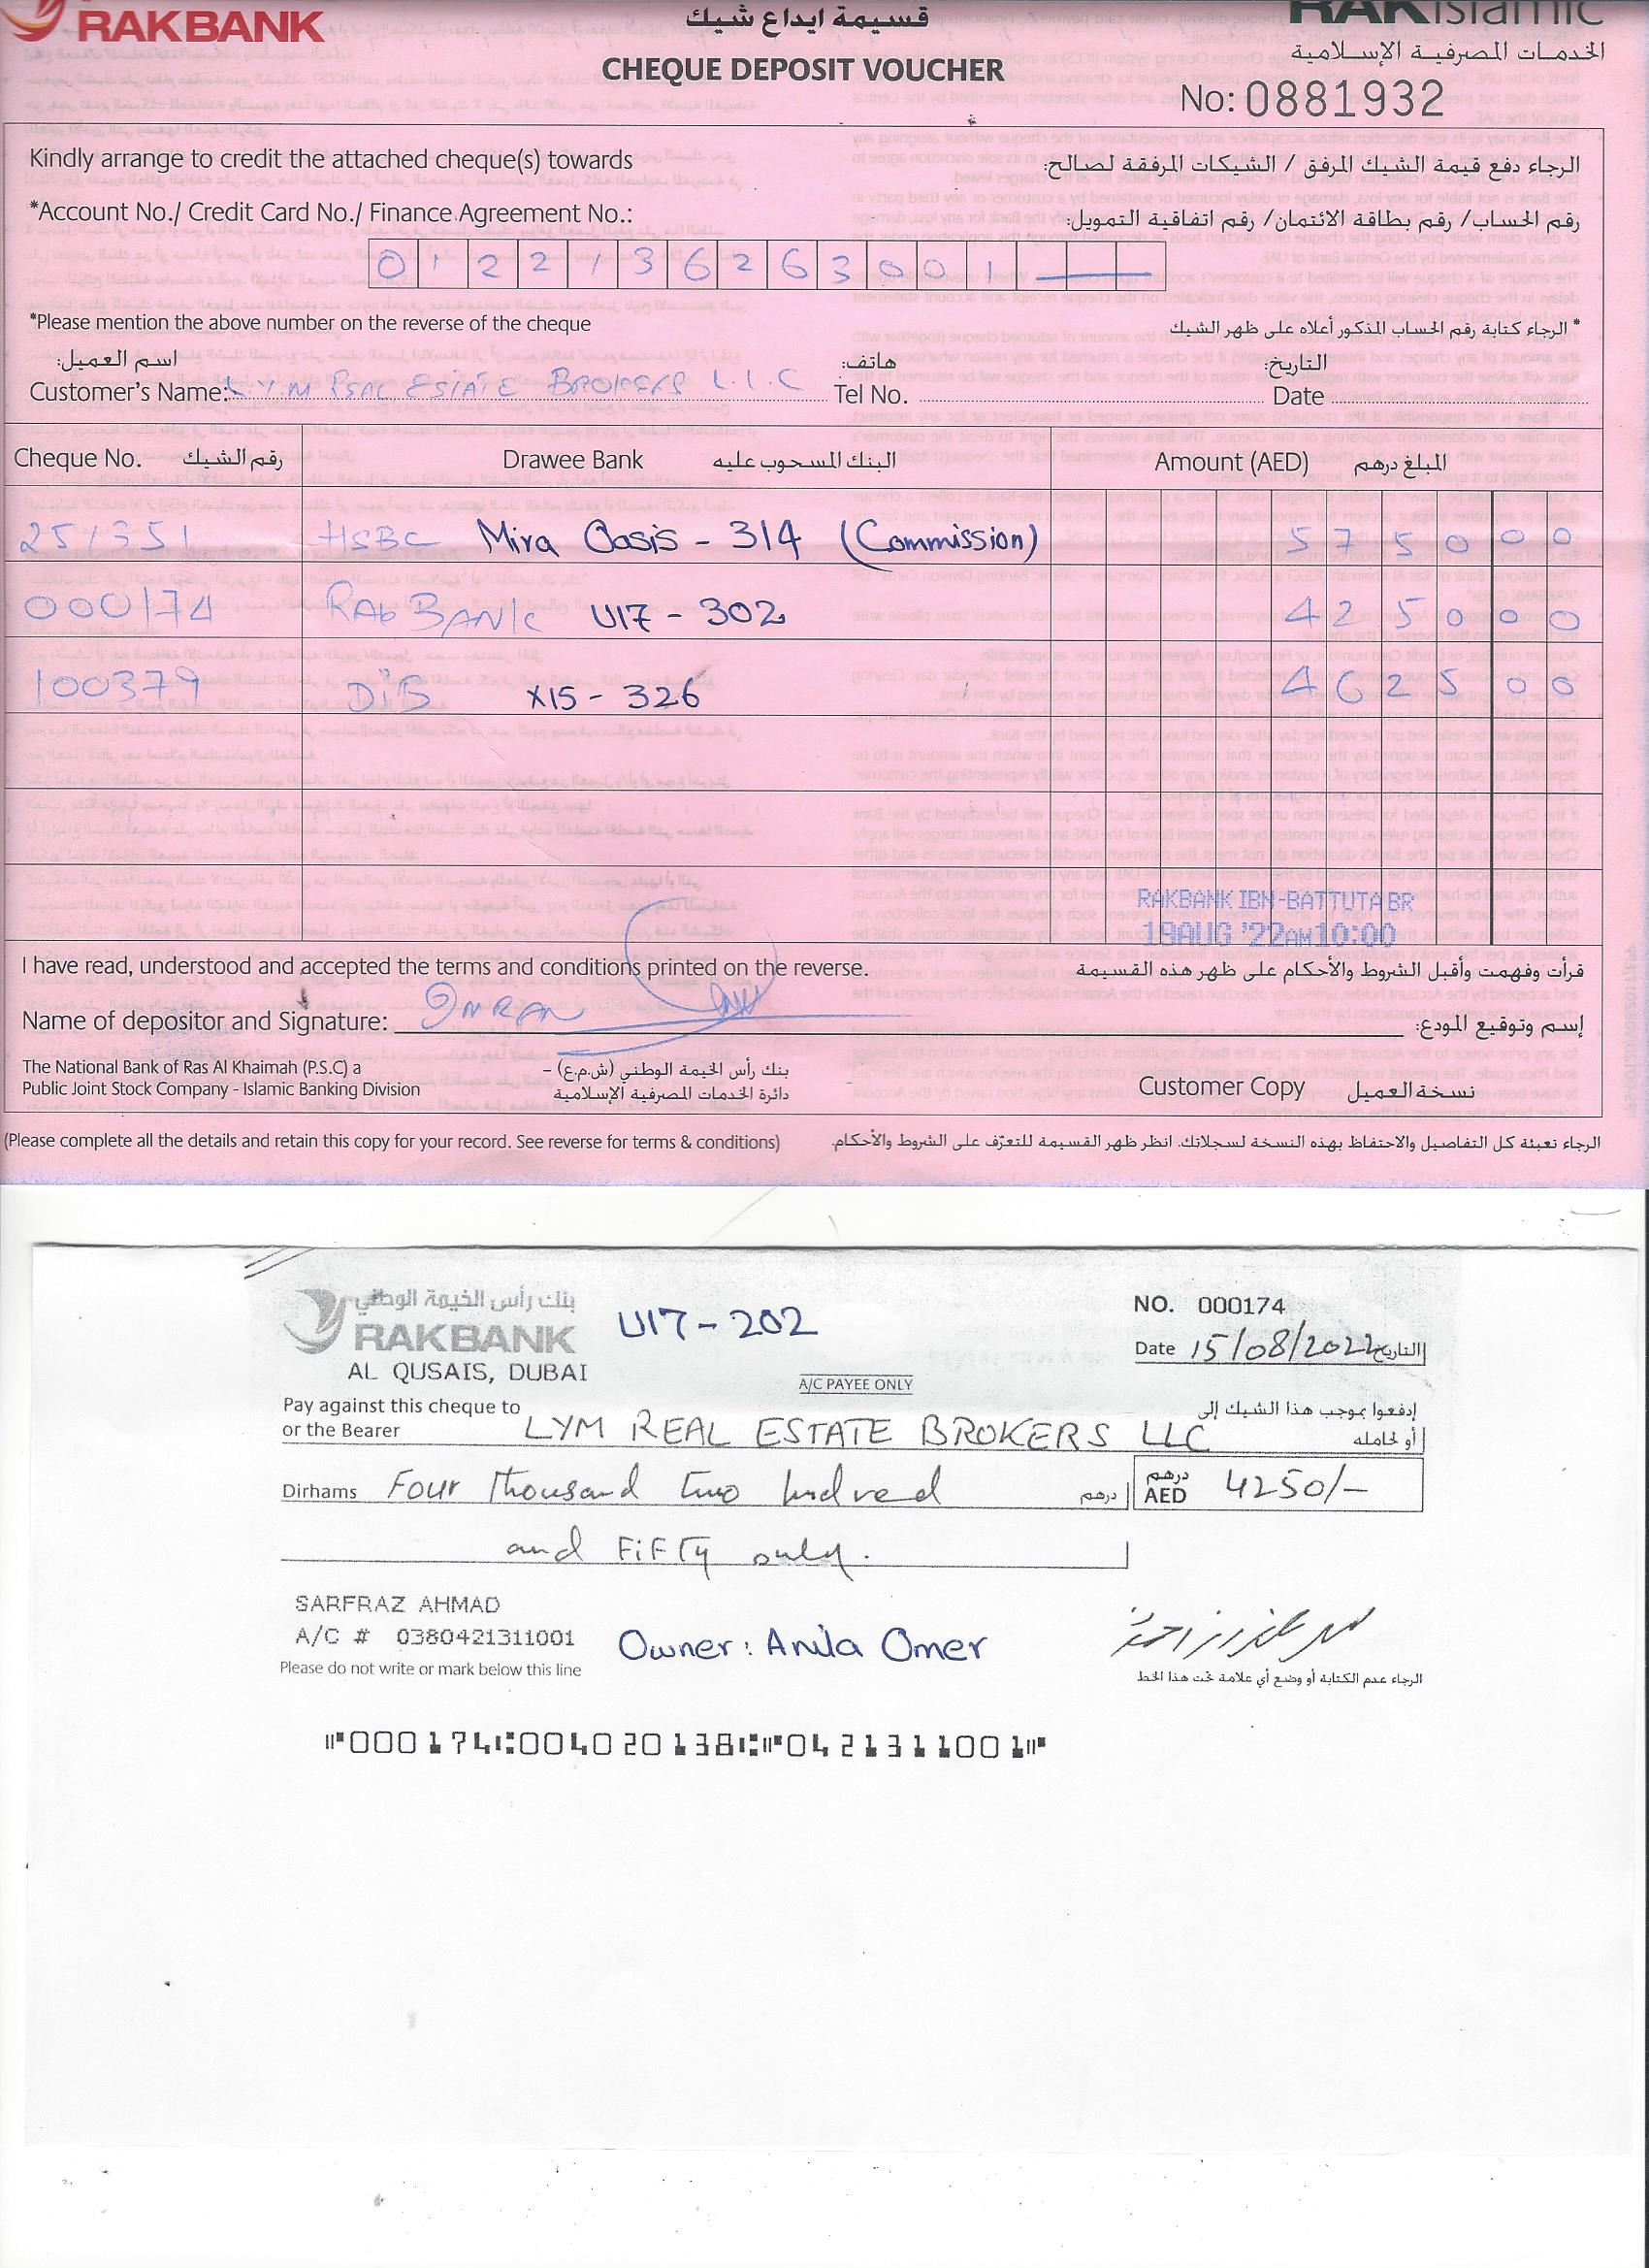 RAKBANK
قسيمة ايداع شيك
RAKislamic
الخدمات المصرفية الإسلامية
CHEQUE DEPOSIT VOUCHER
No: 0881932
Kindly arrange to credit the attached cheque(s) towards
الرجاء دفع قيمة الشيك المرفق / الشيكات المرفقة لصالح:
*Account No./ Credit Card No./ Finance Agreement No.:
رقم الحساب/ رقم بطاقة الائتمان/ رقم اتفاقية التمويل:
0122136263001
*Please mention the above number on the reverse of the cheque
* الرجاء كتابة رقم الحساب المذكور أعلاه على ظهر الشيك
اسم العميل: هاتف: التاريخ:
Customer's Name: LYM REAL ESTATE BROKERS L.L.C Tel No. Date
Cheque No. رقم الشيك Drawee Bank البنك المسحوب عليه Amount (AED) المبلغ درهم
251351 HSBC Mira Oasis - 314 (Commission) 5 7 5 0 0 0
000174 RAK BANK U17 - 302 4 2 5 0 0 0
100379 DiB X15 - 326 4 6 2 5 0 0
RAKBANK IBN-BATTUTA BR
19AUG '22AM10:00
I have read, understood and accepted the terms and conditions printed on the reverse.
قرأت وفهمت وأقبل الشروط والأحكام على ظهر هذه القسيمة
Name of depositor and Signature: IMRAN
إسم وتوقيع المودع:
The National Bank of Ras Al Khaimah (P.S.C) a
Public Joint Stock Company - Islamic Banking Division
بنك رأس الخيمة الوطني (ش.م.ع) –
دائرة الخدمات المصرفية الإسلامية
Customer Copy نسخة العميل
(Please complete all the details and retain this copy for your record. See reverse for terms & conditions)
الرجاء تعبئة كل التفاصيل والاحتفاظ بهذه النسخة لسجلاتك. انظر ظهر القسيمة للتعرّف على الشروط والأحكام.
بنك رأس الخيمة الوطني
RAKBANK
AL QUSAIS, DUBAI
U17 - 202
NO. 000174
Date 15/08/2022 التاريخ
A/C PAYEE ONLY
Pay against this cheque to
or the Bearer
LYM REAL ESTATE BROKERS LLC
إدفعوا بموجب هذا الشيك إلى
أو لحامله
Dirhams Four thousand two hundred درهم
درهم
AED 4250/-
and FiFTy only.
SARFRAZ AHMAD
A/C # 0380421311001
Owner: Anila Omer
Please do not write or mark below this line
الرجاء عدم الكتابة أو وضع أي علامة تحت هذا الخط
⑈000174⑆004020138⑆⑈0421311001⑈